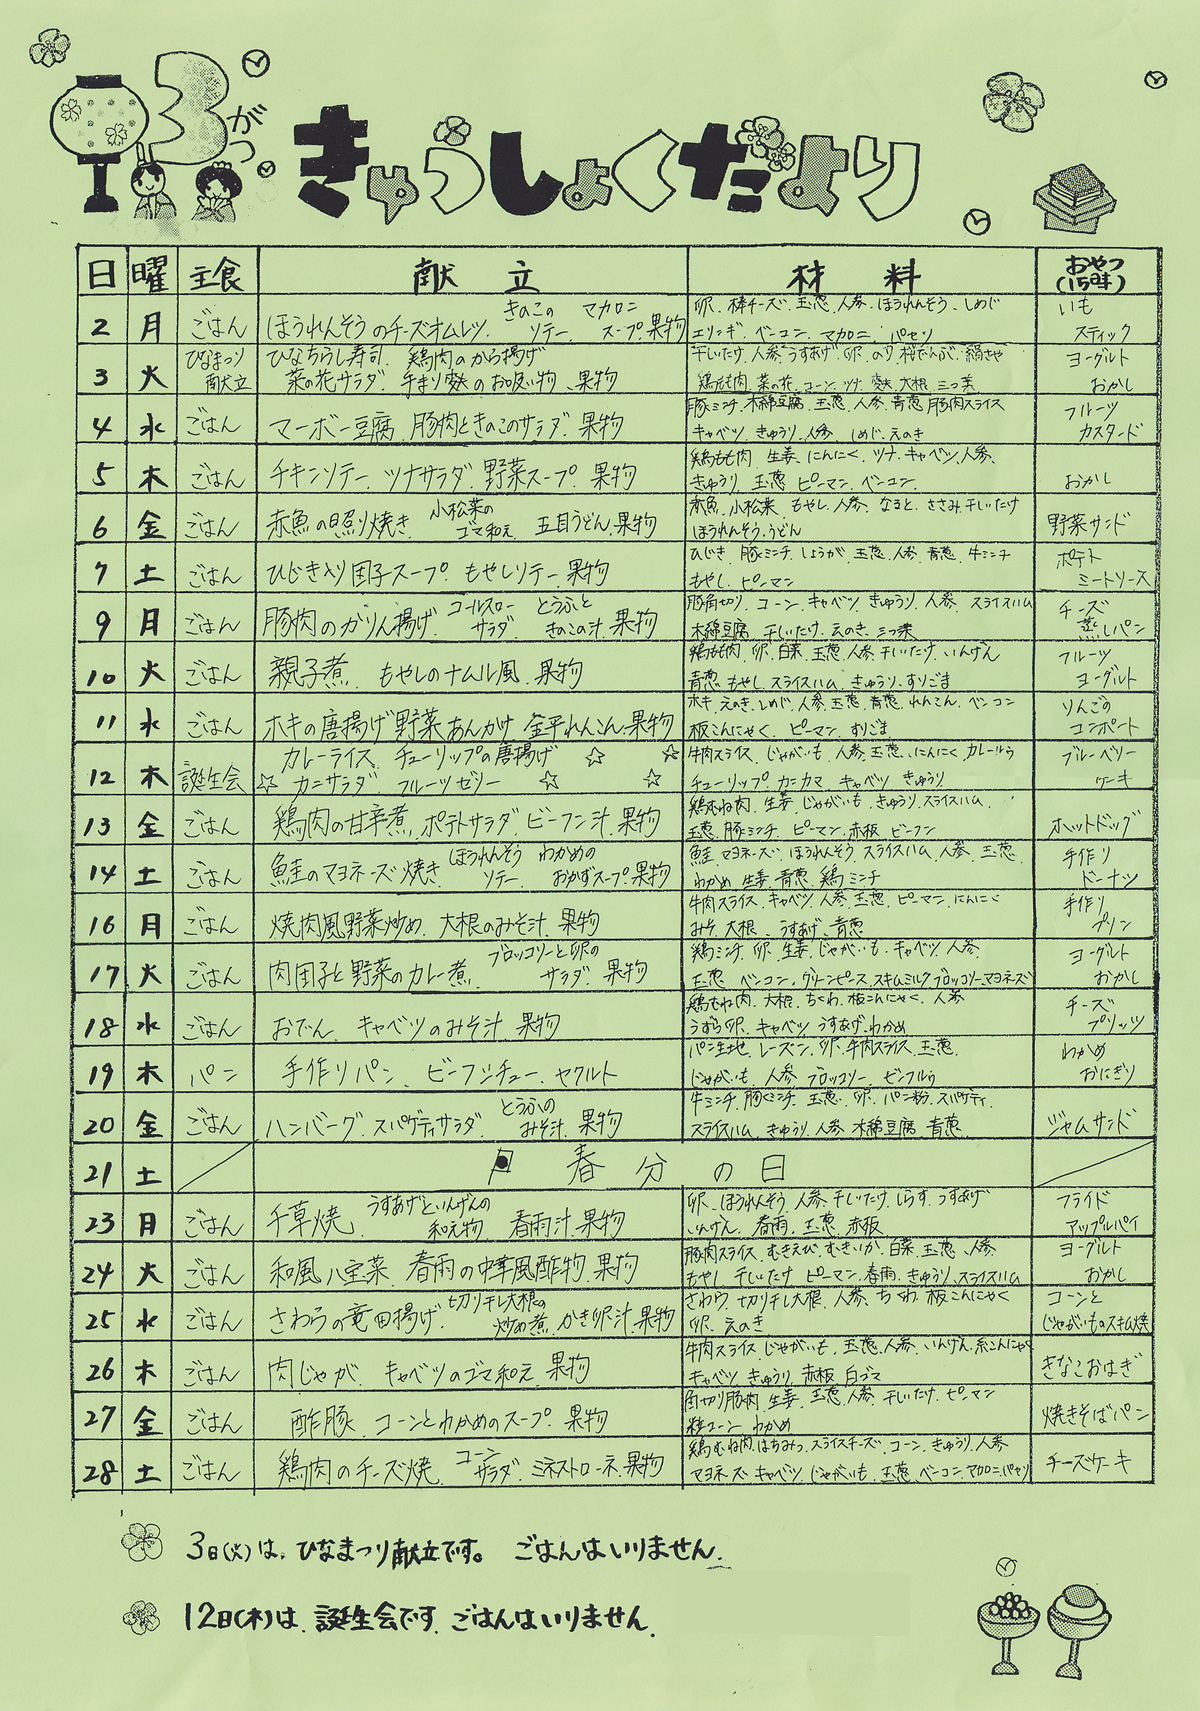 3がつ
きゅうしょくだより
日 曜 主食 献立 材料 おやつ(15時)
2 月 ごはん ほうれんそうのチーズオムレツ、きのこのソテー マカロニスープ、果物 卵、棒チーズ、玉葱、人参、ほうれんそう、しめじ いも
エリンギ、ベーコン、マカロニ、パセリ スティック
3 火 ひなまつり献立 ひなちらし寿司、鶏肉のから揚げ 干しいたけ、人参、うすあげ、卵、のり、桜でんぶ、絹さや ヨーグルト
菜の花サラダ、手まり麩のお吸い物、果物 鶏もも肉、菜の花、コーン、ツナ、麩、大根、三つ葉 おかし
4 水 ごはん マーボー豆腐、豚肉ときのこのサラダ、果物 豚ミンチ、木綿豆腐、玉葱、人参、青葱、豚肉スライス フルーツ
キャベツ、きゅうり、人参、しめじ、えのき カスタード
5 木 ごはん チキンソテー、ツナサラダ、野菜スープ、果物 鶏もも肉、生姜、にんにく、ツナ、キャベツ、人参、
きゅうり、玉葱、ピーマン、ベーコン おかし
6 金 ごはん 赤魚の照り焼き、小松菜のゴマ和え、五目うどん、果物 赤魚、小松菜、もやし、人参、なると、ささみ、干しいたけ
ほうれんそう、うどん 野菜サンド
7 土 ごはん ひじき入り団子スープ、もやしソテー、果物 ひじき、豚ミンチ、しょうが、玉葱、人参、青葱、牛ミンチ ポテト
もやし、ピーマン ミートソース
9 月 ごはん 豚肉のかりん揚げ、コールスローサラダ、とうふときのこの汁、果物 豚角切り、コーン、キャベツ、きゅうり、人参、スライスハム チーズ
木綿豆腐、干しいたけ、えのき、三つ葉 蒸しパン
10 火 ごはん 親子煮、もやしのナムル風、果物 鶏もも肉、卵、白菜、玉葱、人参、干しいたけ、いんげん フルーツ
青葱、もやし、スライスハム、きゅうり、すりごま ヨーグルト
11 水 ごはん ホキの唐揚げ野菜あんかけ、金平れんこん、果物 ホキ、えのき、しめじ、人参、玉葱、青葱、れんこん、ベーコン りんごの
板こんにゃく、ピーマン、すりごま コンポート
12 木 誕生会 カレーライス、チューリップの唐揚げ ☆ ☆ 牛肉スライス、じゃがいも、人参、玉葱、にんにく、カレールウ ブルーベリー
☆ カニサラダ、フルーツゼリー ☆ ☆ チューリップ、カニカマ、キャベツ、きゅうり ケーキ
13 金 ごはん 鶏肉の甘辛煮、ポテトサラダ、ビーフン汁、果物 鶏むね肉、生姜、じゃがいも、きゅうり、スライスハム、
玉葱、豚ミンチ、ピーマン、赤板、ビーフン ホットドッグ
14 土 ごはん 鮭のマヨネーズ焼き、ほうれんそうソテー、わかめのおかずスープ、果物 鮭、マヨネーズ、ほうれんそう、スライスハム、人参、玉葱 手作り
わかめ、生姜、青葱、鶏ミンチ ドーナツ
16 月 ごはん 焼肉風野菜炒め、大根のみそ汁、果物 牛肉スライス、キャベツ、人参、玉葱、ピーマン、にんにく 手作り
みそ、大根、うすあげ、青葱 プリン
17 火 ごはん 肉団子と野菜のカレー煮、ブロッコリーと卵のサラダ、果物 鶏ミンチ、卵、生姜、じゃがいも、キャベツ、人参、 ヨーグルト
玉葱、ベーコン、グリーンピース、スキムミルク、ブロッコリー、マヨネーズ おかし
18 水 ごはん おでん、キャベツのみそ汁、果物 鶏もね肉、大根、ちくわ、板こんにゃく、人参 チーズ
うずら卵、キャベツ、うすあげ、わかめ プリッツ
19 木 パン 手作りパン、ビーフシチュー、ヤクルト パン生地、レーズン、卵、牛肉スライス、玉葱、 わかめ
じゃがいも、人参、ブロッコリー、ビーフルウ おにぎり
20 金 ごはん ハンバーグ、スパゲティサラダ、とうふのみそ汁、果物 牛ミンチ、豚ミンチ、玉葱、卵、パン粉、スパゲティ、
スライスハム、きゅうり、人参、木綿豆腐、青葱 ジャムサンド
21 土 春分の日
23 月 ごはん 千草焼、うすあげといんげんの和え物、春雨汁、果物 卵、ほうれんそう、人参、干しいたけ、しらす、うすあげ フライド
いんげん、春雨、玉葱、赤板 アップルパイ
24 火 ごはん 和風八宝菜、春雨の中華風酢物、果物 豚肉スライス、むきえび、むきいか、白菜、玉葱、人参 ヨーグルト
もやし、干しいたけ、ピーマン、春雨、きゅうり、スライスハム おかし
25 水 ごはん さわらの竜田揚げ、切り干し大根の炒め煮、かき卵汁、果物 さわら、切り干し大根、人参、ちくわ、板こんにゃく コーンと
卵、えのき じゃがいものスキム焼
26 木 ごはん 肉じゃが、キャベツのゴマ和え、果物 牛肉スライス、じゃがいも、玉葱、人参、いんげん、糸こんにゃく
キャベツ、きゅうり、赤板、白ゴマ きなこおはぎ
27 金 ごはん 酢豚、コーンとわかめのスープ、果物 角切り豚肉、生姜、玉葱、人参、干しいたけ、ピーマン
粒コーン、わかめ 焼きそばパン
28 土 ごはん 鶏肉のチーズ焼、コーンサラダ、ミネストローネ、果物 鶏むね肉、はちみつ、スライスチーズ、コーン、きゅうり、人参
マヨネーズ、キャベツ、じゃがいも、玉葱、ベーコン、マカロニ、パセリ チーズケーキ
3日(火)は、ひなまつり献立です。 ごはんはいりません。
12日(木)は、誕生会です、ごはんはいりません。